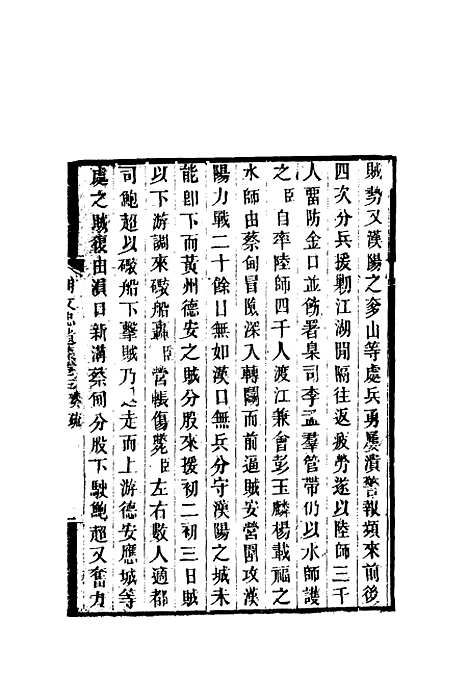 賊勢又漢陽之奓山等處兵勇屢潰警報頻來前後
四次分兵援剿江湖間隔往返疲勞遂以陸師三千
人留防金口並飭署臬司李孟羣管帶仍以水師護
之臣自率陸師四千人渡江兼會彭玉麟楊載福之
水師由蔡甸冒險深入轉鬬而前逼賊安營圍攻漢
陽力戰二十餘日無如漢口無兵分守漢陽之城未
能卽下而黃州德安之賊分股來援初二初三日賊
以下游調來礮船轟臣營帳傷斃臣左右數人適都
司鮑超以礮船下擊賊乃走而上游德安應城等
處之賊復由溳口新溝蔡甸分股下駛鮑超又奮力
胡文忠遺集卷三奏疏